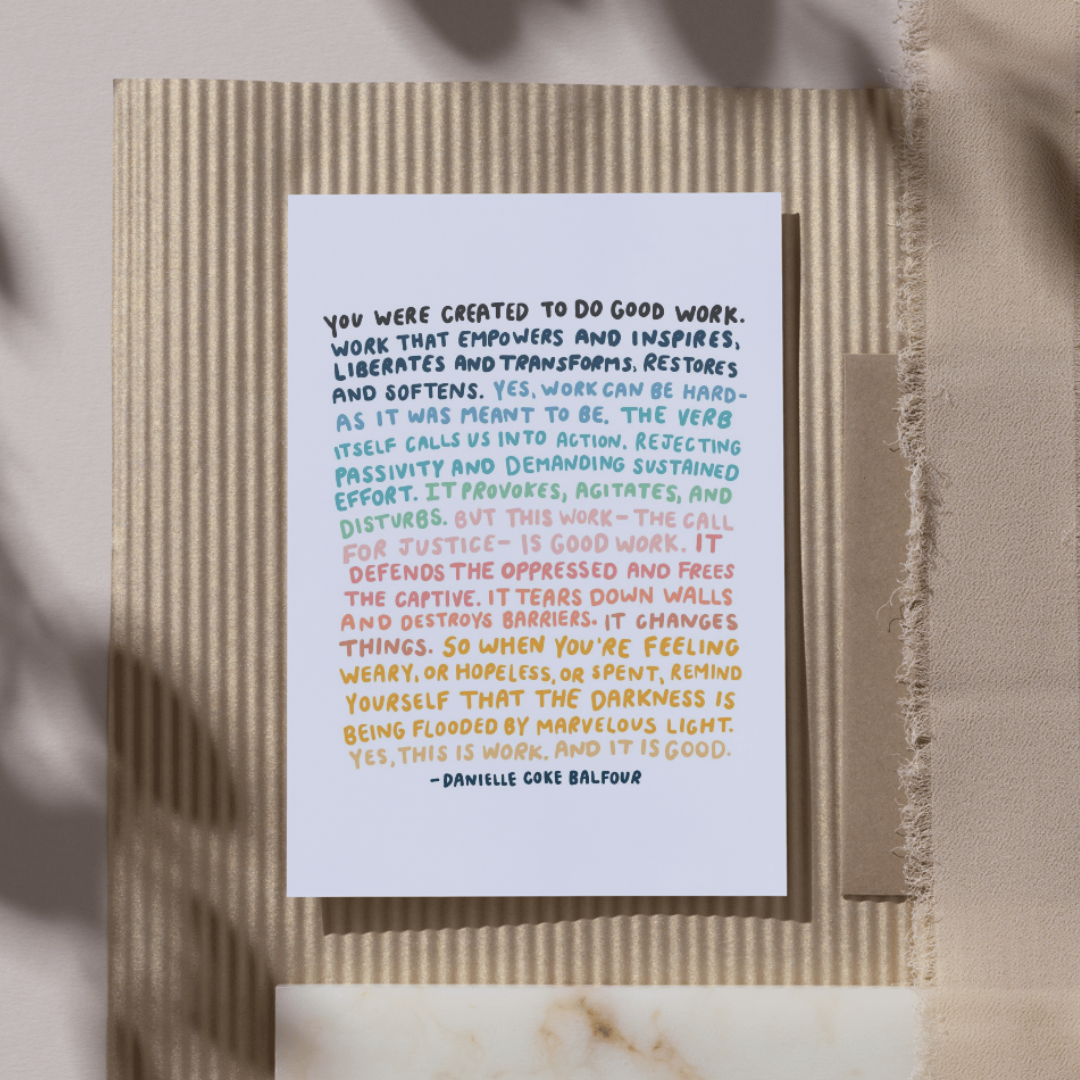 YOU WERE CREATED TO DO GOOD WORK.
WORK THAT EMPOWERS AND INSPIRES,
LIBERATES AND TRANSFORMS, RESTORES
AND SOFTENS. YES, WORK CAN BE HARD-
AS IT WAS MEANT TO BE. THE VERB
ITSELF CALLS US INTO ACTION. REJECTING
PASSIVITY AND DEMANDING SUSTAINED
EFFORT. IT PROVOKES, AGITATES, AND
DISTURBS. BUT THIS WORK- THE CALL
FOR JUSTICE- IS GOOD WORK. IT
DEFENDS THE OPPRESSED AND FREES
THE CAPTIVE. IT TEARS DOWN WALLS
AND DESTROYS BARRIERS. IT CHANGES
THINGS. SO WHEN YOU'RE FEELING
WEARY, OR HOPELESS, OR SPENT, REMIND
YOURSELF THAT THE DARKNESS IS
BEING FLOODED BY MARVELOUS LIGHT.
YES, THIS IS WORK. AND IT IS GOOD.
-DANIELLE COKE BALFOUR